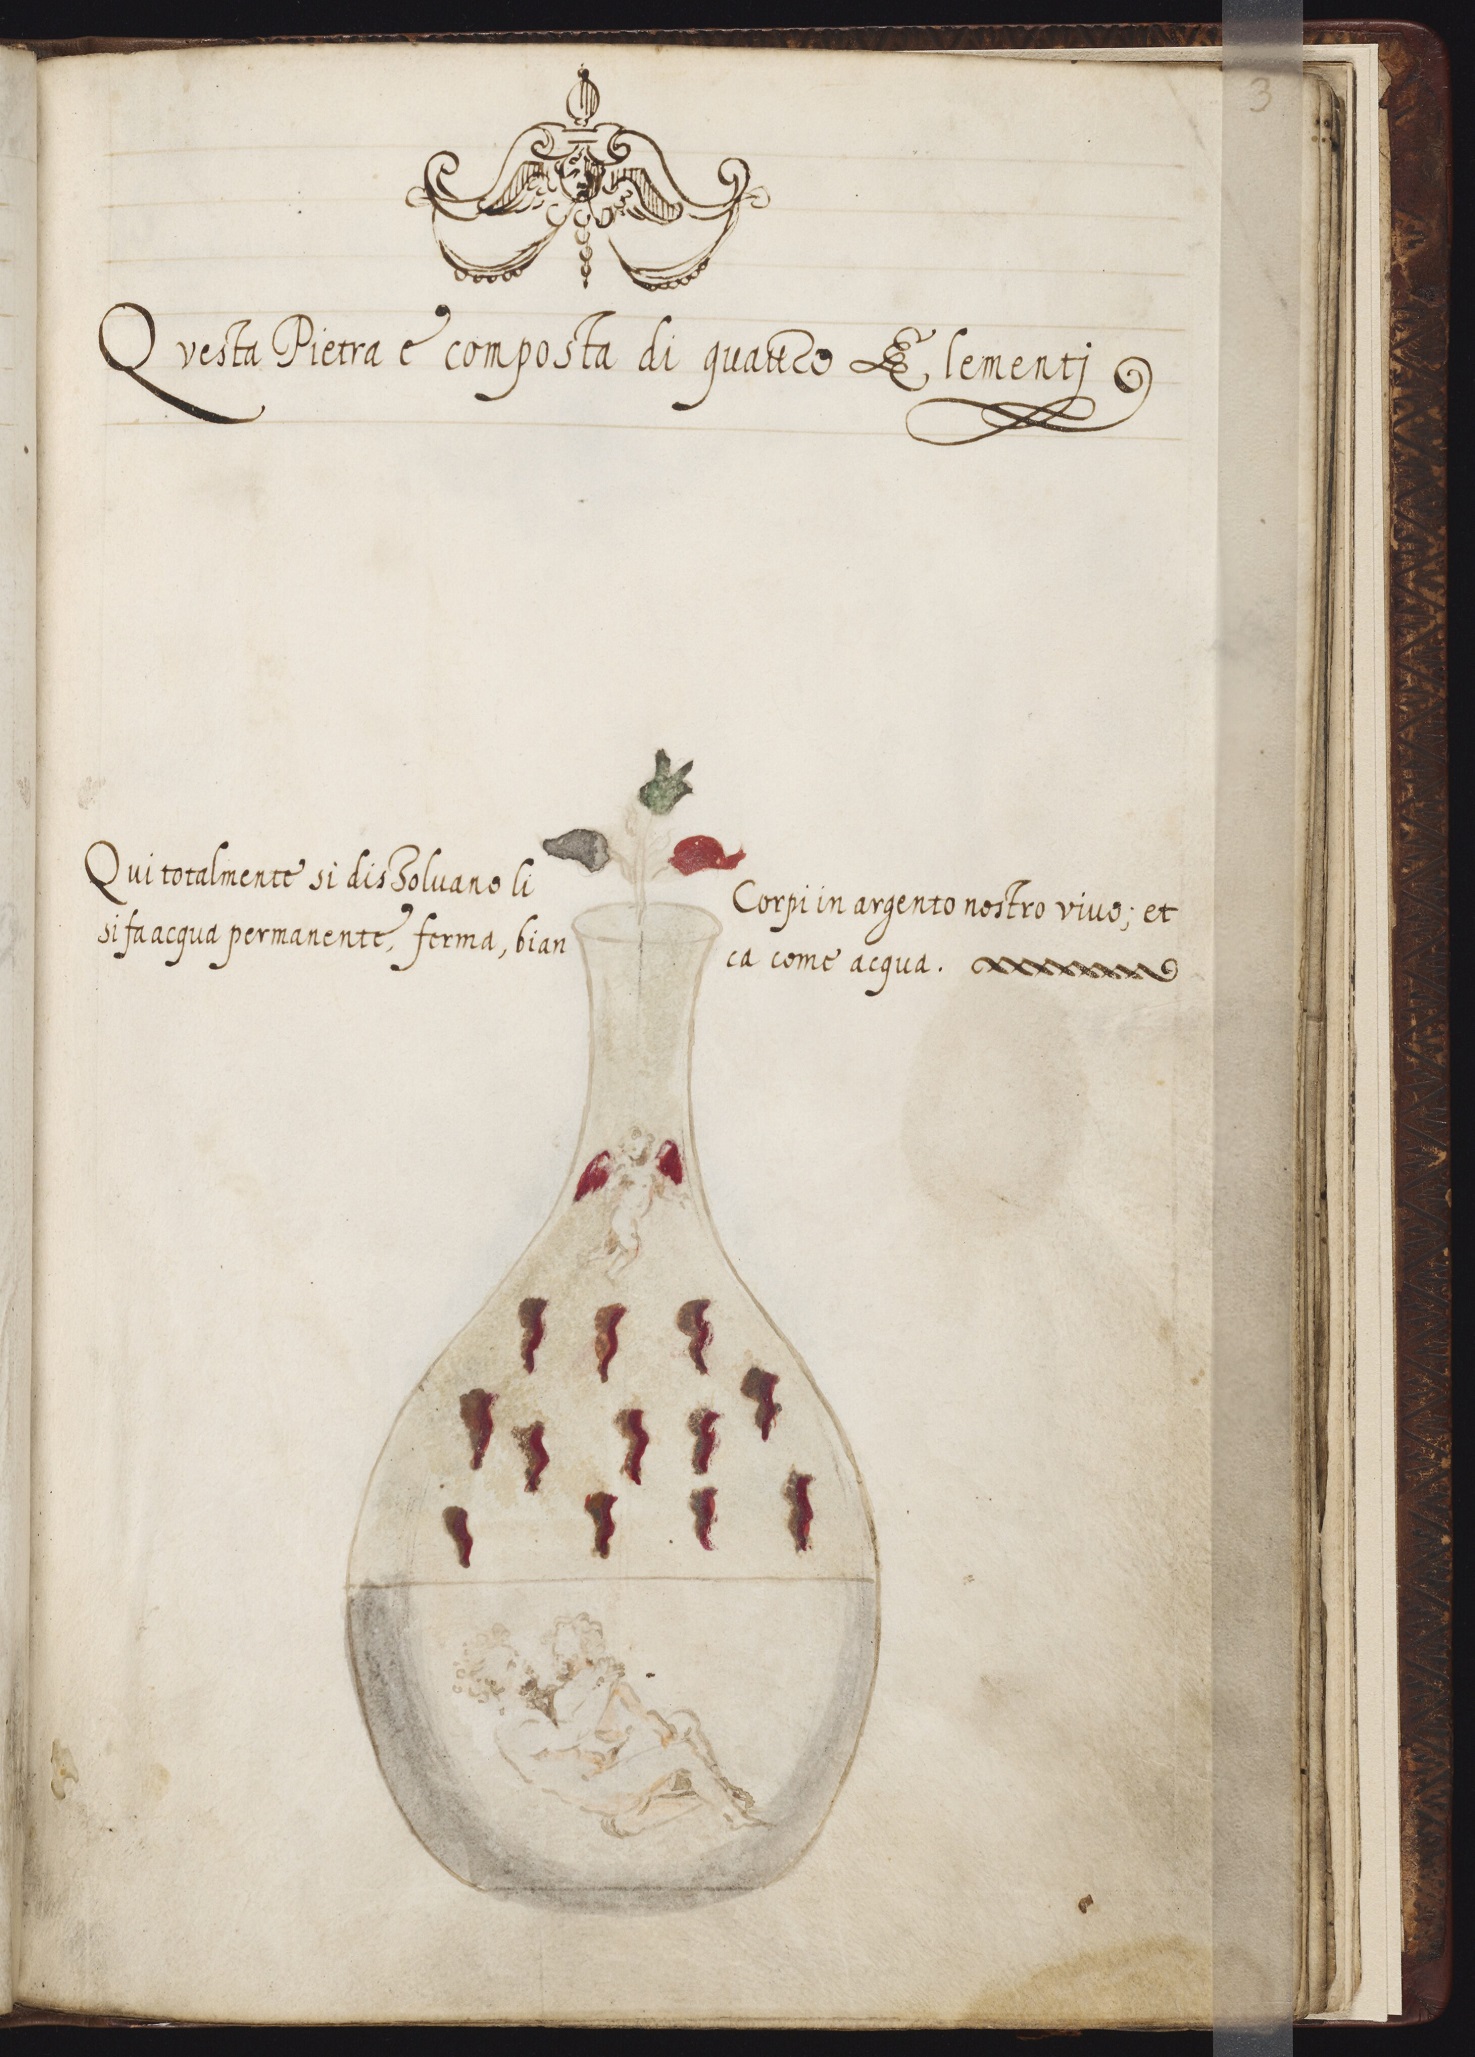 3
Questa Pietra e composta di quattro Elementj
Qui totalmente si dissoluano li Corpi in argento nostro viuo; et
si fa acqua permanente, ferma, bianca come acqua.